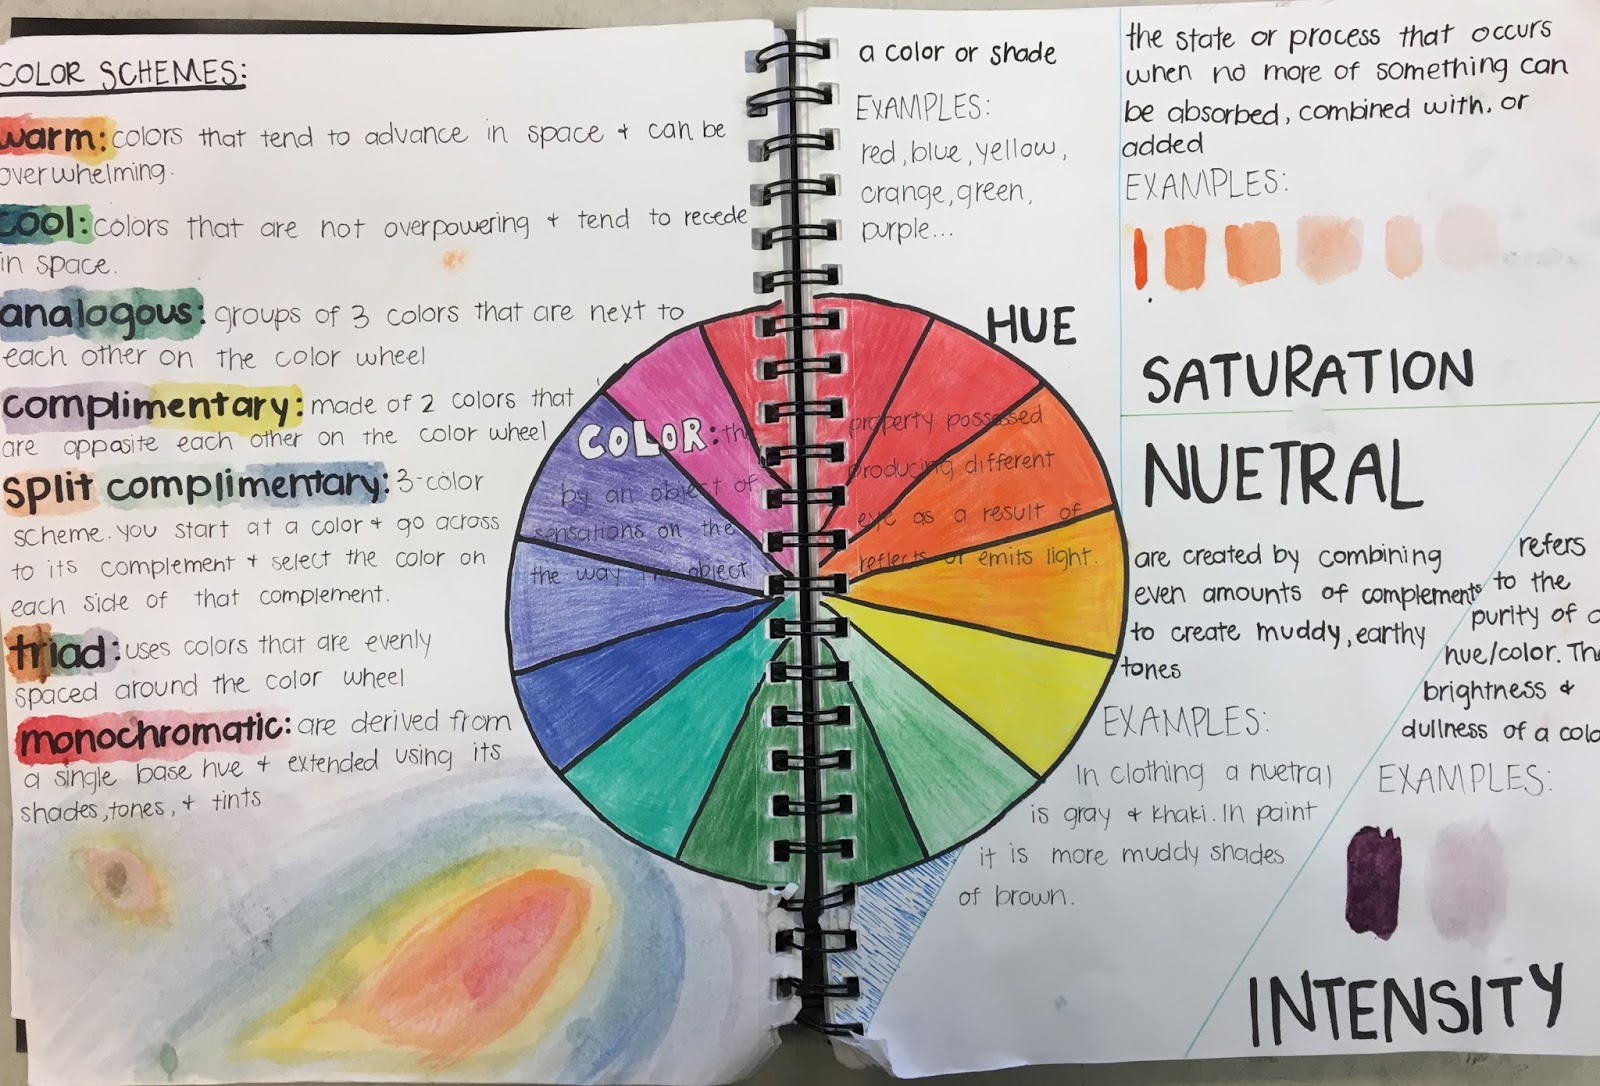 COLOR SCHEMES:
warm: colors that tend to advance in space + can be
overwhelming.
cool: colors that are not overpowering + tend to recede
in space.
analogous: groups of 3 colors that are next to
each other on the color wheel
complimentary: made of 2 colors that
are opposite each other on the color wheel
split complimentary: 3-color
scheme. you start at a color + go across
to its complement + select the color on
each side of that complement.
triad: uses colors that are evenly
spaced around the color wheel
monochromatic: are derived from
a single base hue + extended using its
shades, tones, + tints
COLOR: the property possessed
by an object of producing different
sensations on the eye as a result of
the way the object reflects or emits light.
a color or shade
EXAMPLES:
red, blue, yellow,
orange, green,
purple...
HUE
the state or process that occurs
when no more of something can
be absorbed, combined with, or
added
EXAMPLES:
SATURATION
NUETRAL
are created by combining
even amounts of complements
to create muddy, earthy
tones
EXAMPLES:
In clothing a nuetral
is gray + khaki. In paint
it is more muddy shades
of brown.
refers
to the
purity of a
hue/color. The
brightness +
dullness of a colo
EXAMPLES:
INTENSITY